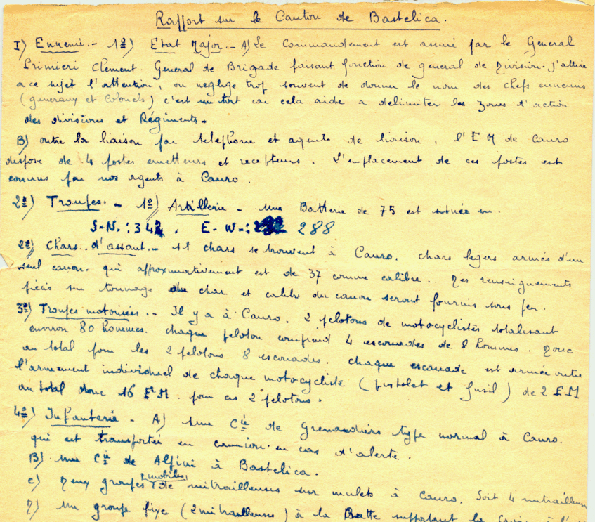 Rapport sur le Canton de Bastelica.
I) Ennemi.- 1º) Etat Major.- A) Le Commandement est assuré par le General
Primieri Clément, General de Brigade faisant fonction de general de Division. J'attire
a ce sujet l'attention, on neglige trop souvent de donner le nom des Chefs ennemis
(generaux et Colonels) c'est un tort car cela aide a delimiter les zones d'action
des divisions et Régiments.
B) outre la liaison par telephone et agents de liaison, l'E M de Cauro
dispose de 4 postes emetteurs et recepteurs. L'emplacement de ces postes est
connus par nos agents à Cauro.
2º) Troupes.- 1º) Artillerie.- une Batterie de 75 est située en
S-N.: 342. E-W.: 288
2º) Chars d'assaut.- 11 chars se trouvent à Cauro. chars legers armés d'un
seul canon qui approximativement est de 37 comme calibre. Des renseignements
précis sur tonnage du char et calibre du canon seront fournis sous peu.
3º) Troupes motorisées.- Il y a à Cauro. 2 pelotons de motocyclistes totalisant
environ 80 hommes. chaque peloton comprend 4 escouades de 8 hommes. Donc
au total pour les 2 pelotons 8 escouades. chaque escouade est armée outre
l'armement individuel de chaque motocycliste (pistolet et fusil) de 2 F.M
au total donc 16 F.M. pour ces 2 pelotons.
4º) Infanterie.- A) une Cie de Grenadiers type normal à Cauro
qui est transportée en camion en cas d'alerte.
B) une Cie de Alpini à Bastelica.
c) Deux groupes mobiles de mitrailleuses sur mulets à Cauro. Soit 4 mitrailleuses
D) un groupe fixe (2 mitrailleuses) à la